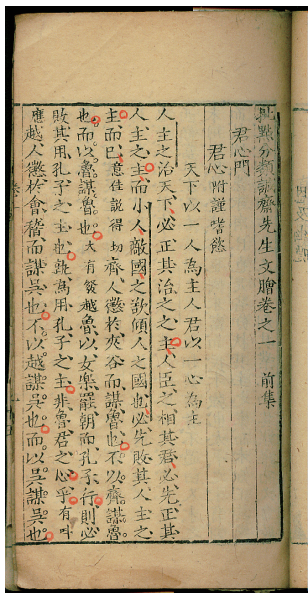 批點分類誠齋先生文膾卷之一 前集
君心門
君心附謹嗜慾
天下以一人為主人君以一心為主
人主之治天下必正其治之之主人臣之相其君必先正其
人主之主而小人敵國之欲傾人之國也必先敗其人主之
主而已意佳說得切齊人懲於夾谷而謀魯也不以齊謀魯
也而以魯謀魯也大有發越魯以女樂罷朝而孔子行則必
敗其用孔子之主也孰為用孔子之主非魯君之心乎有叫
應越人懲於會稽而謀吳也不以越謀吳也而以吳謀吳也